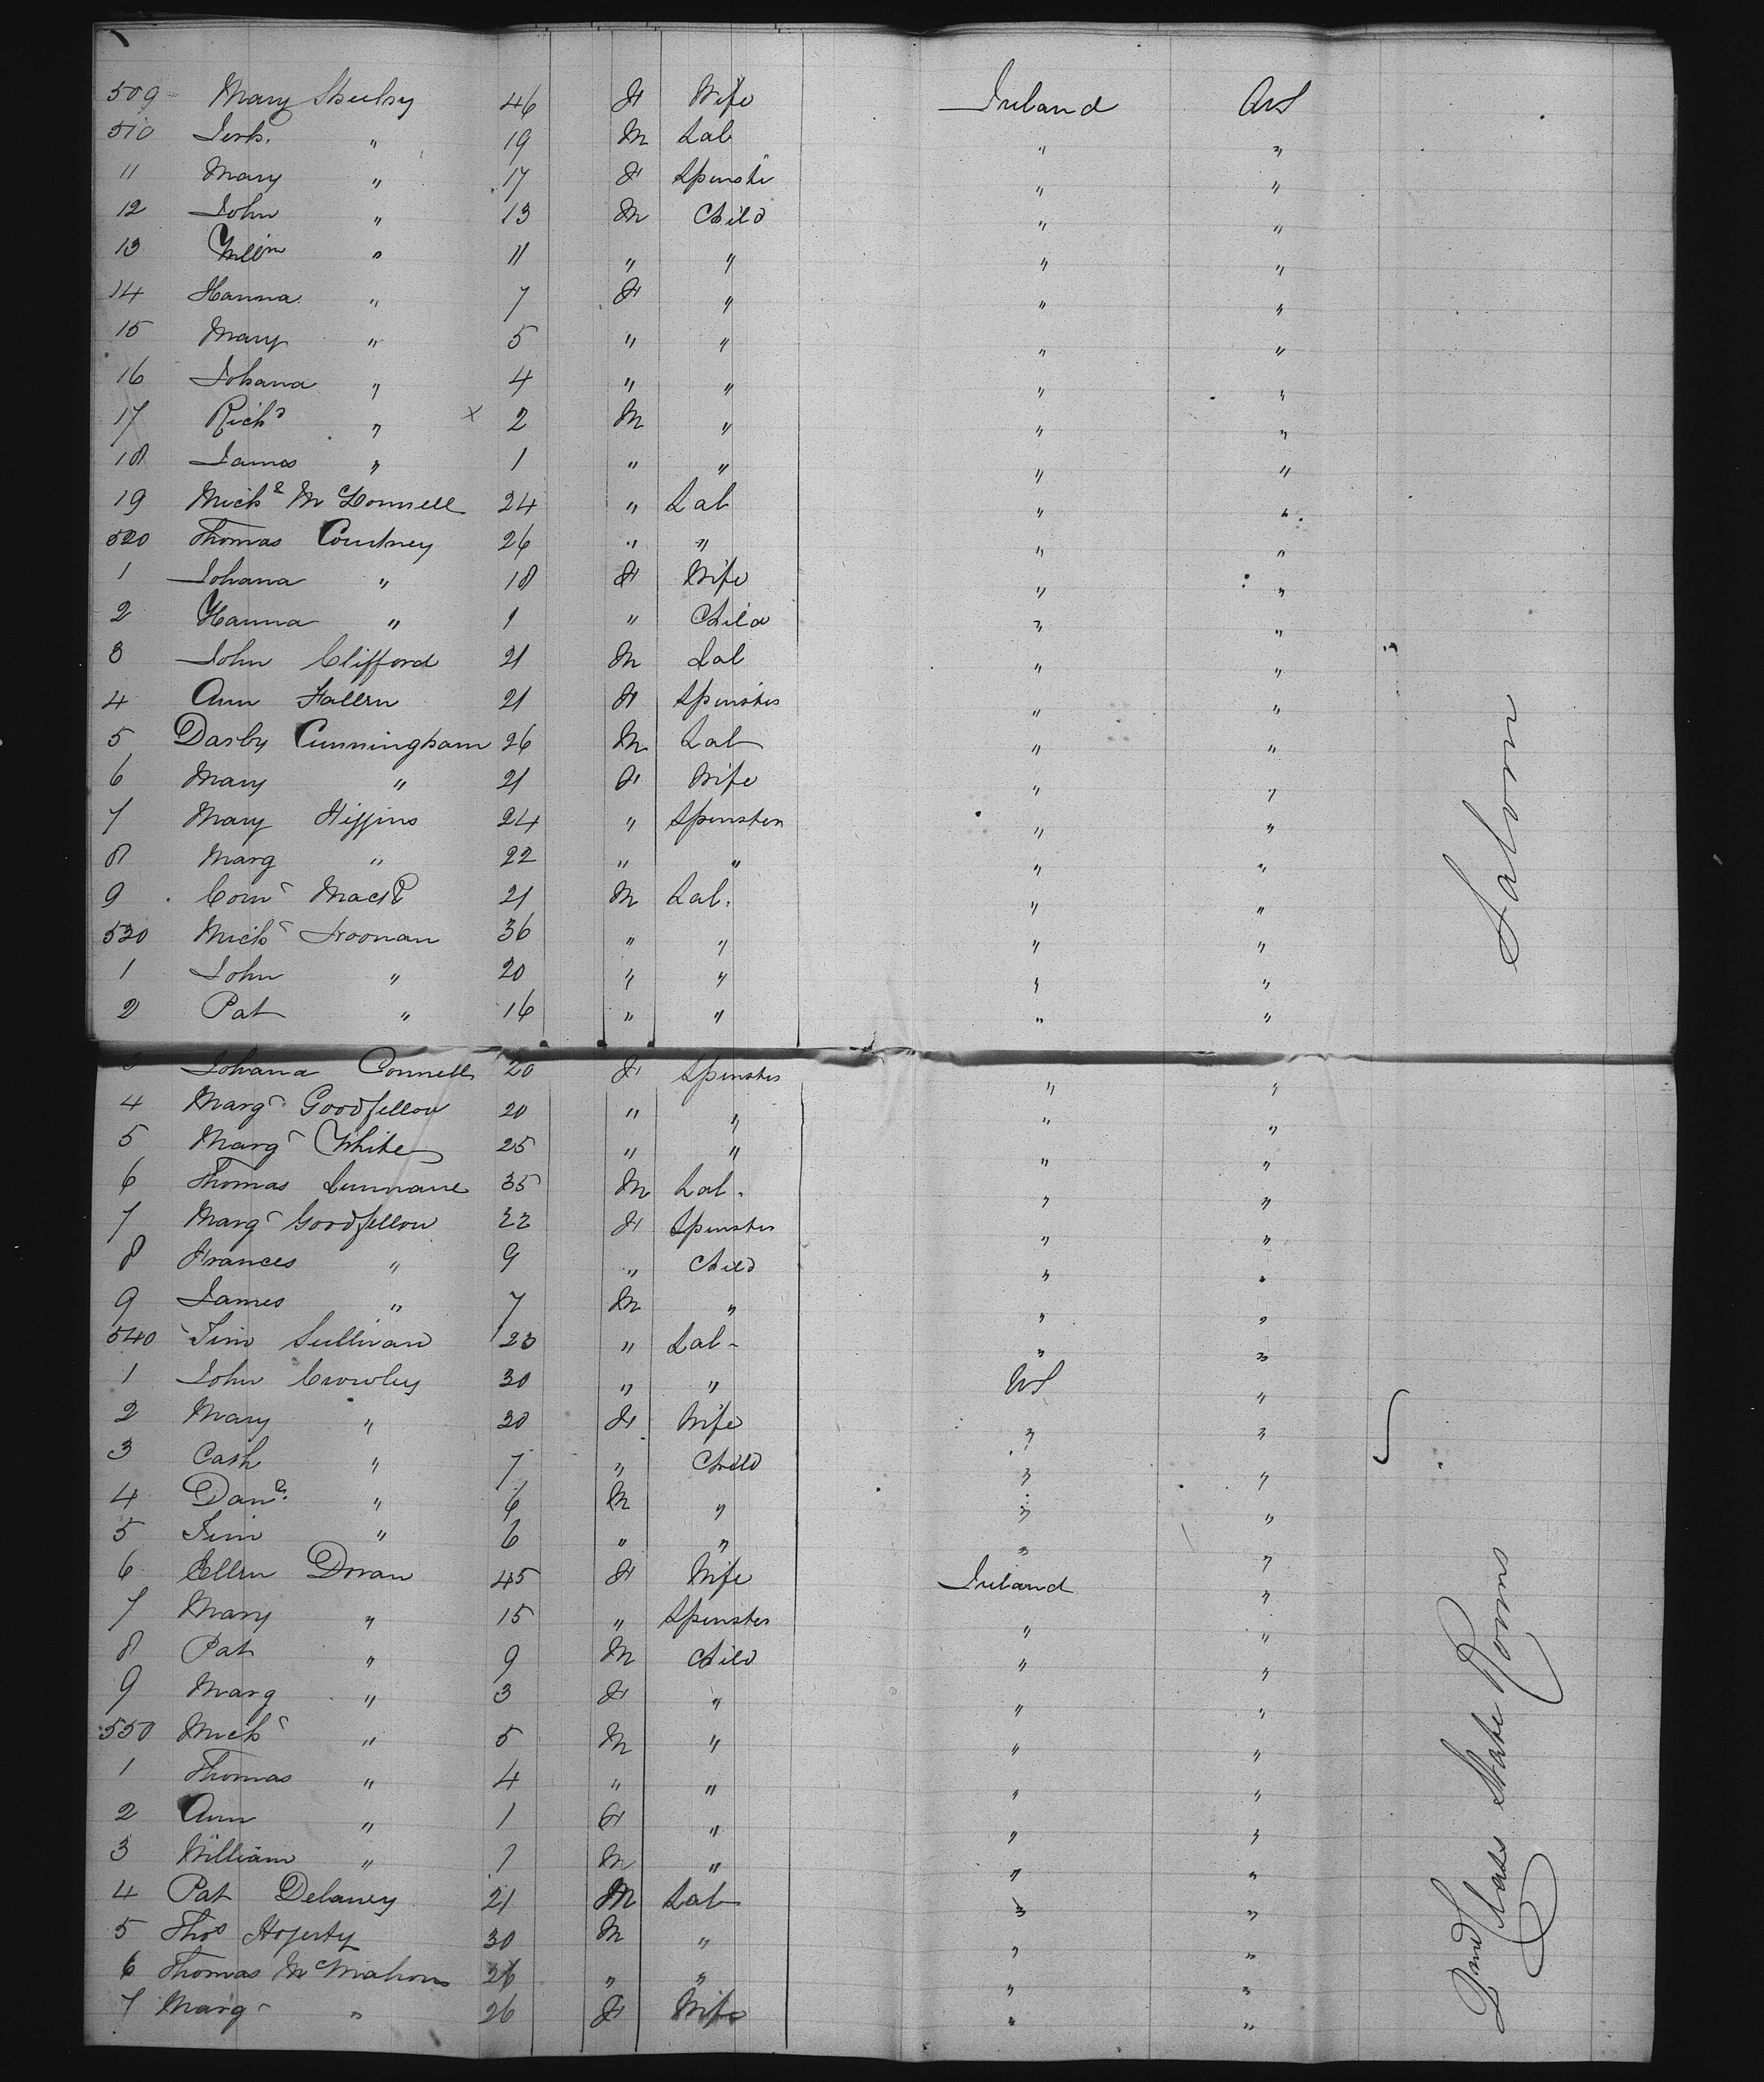 509 Mary Sheehy 46 F Wife Ireland US
510 " 19 M Lab " "
11 Mary " 17 F Spinster " "
12 John " 13 M Child " "
13 Willm " 11 " " " "
14 Hanna " 7 F " " "
15 Mary " 5 " " " "
16 Johana " 4 " " " "
17 Richd " x 2 M " " "
18 James " 1 " " " "
19 Michl McDonnell 24 " Lab " "
520 Thomas Courtney 26 " " " "
1 Johana " 18 F Wife " "
2 Hanna " 1 " Child " "
3 John Clifford 21 M Lab " "
4 Ann Fallen 21 F Spinster " "
5 Darby Cunningham 26 M Lab " "
6 Mary " 21 F Wife " "
7 Mary Higgins 24 " Spinster " "
8 Marg " 22 " " " "
9 Corns 21 M Lab. " "
530 Michl Noonan 36 " " " "
1 John " 20 " " " "
2 Pat " 16 " " " "
3 Johana Connell 20 F Spinster " "
4 Margt Goodfellow 20 " " " "
5 Margt White 25 " " " "
6 Thomas 35 M Lab. " "
7 Margt Goodfellow 22 F Spinster " "
8 Frances " 9 " Child " "
9 James " 7 M " " "
540 Tim Sullivan 23 " Lab- " "
1 John Crowley 30 " " US "
2 Mary " 30 F Wife " "
3 Cath " 7 " Child " "
4 Danl. " 6 M " " "
5 Tim " 6 " " " "
6 Ellen Doran 45 F Wife Ireland "
7 Mary " 15 " Spinster " "
8 Pat " 9 M Child " "
9 Marg " 3 F " " "
550 Michl " 5 M " " "
1 Thomas " 4 " " " "
2 Ann " 1 F " " "
3 William " 1 M " " "
4 Pat Delaney 21 M Lab " "
5 Thos Hogerty 30 M " " "
6 Thomas McMahon 26 " " " "
7 Margt " 26 F Wife " "
Saloon
2nd Class State Rooms